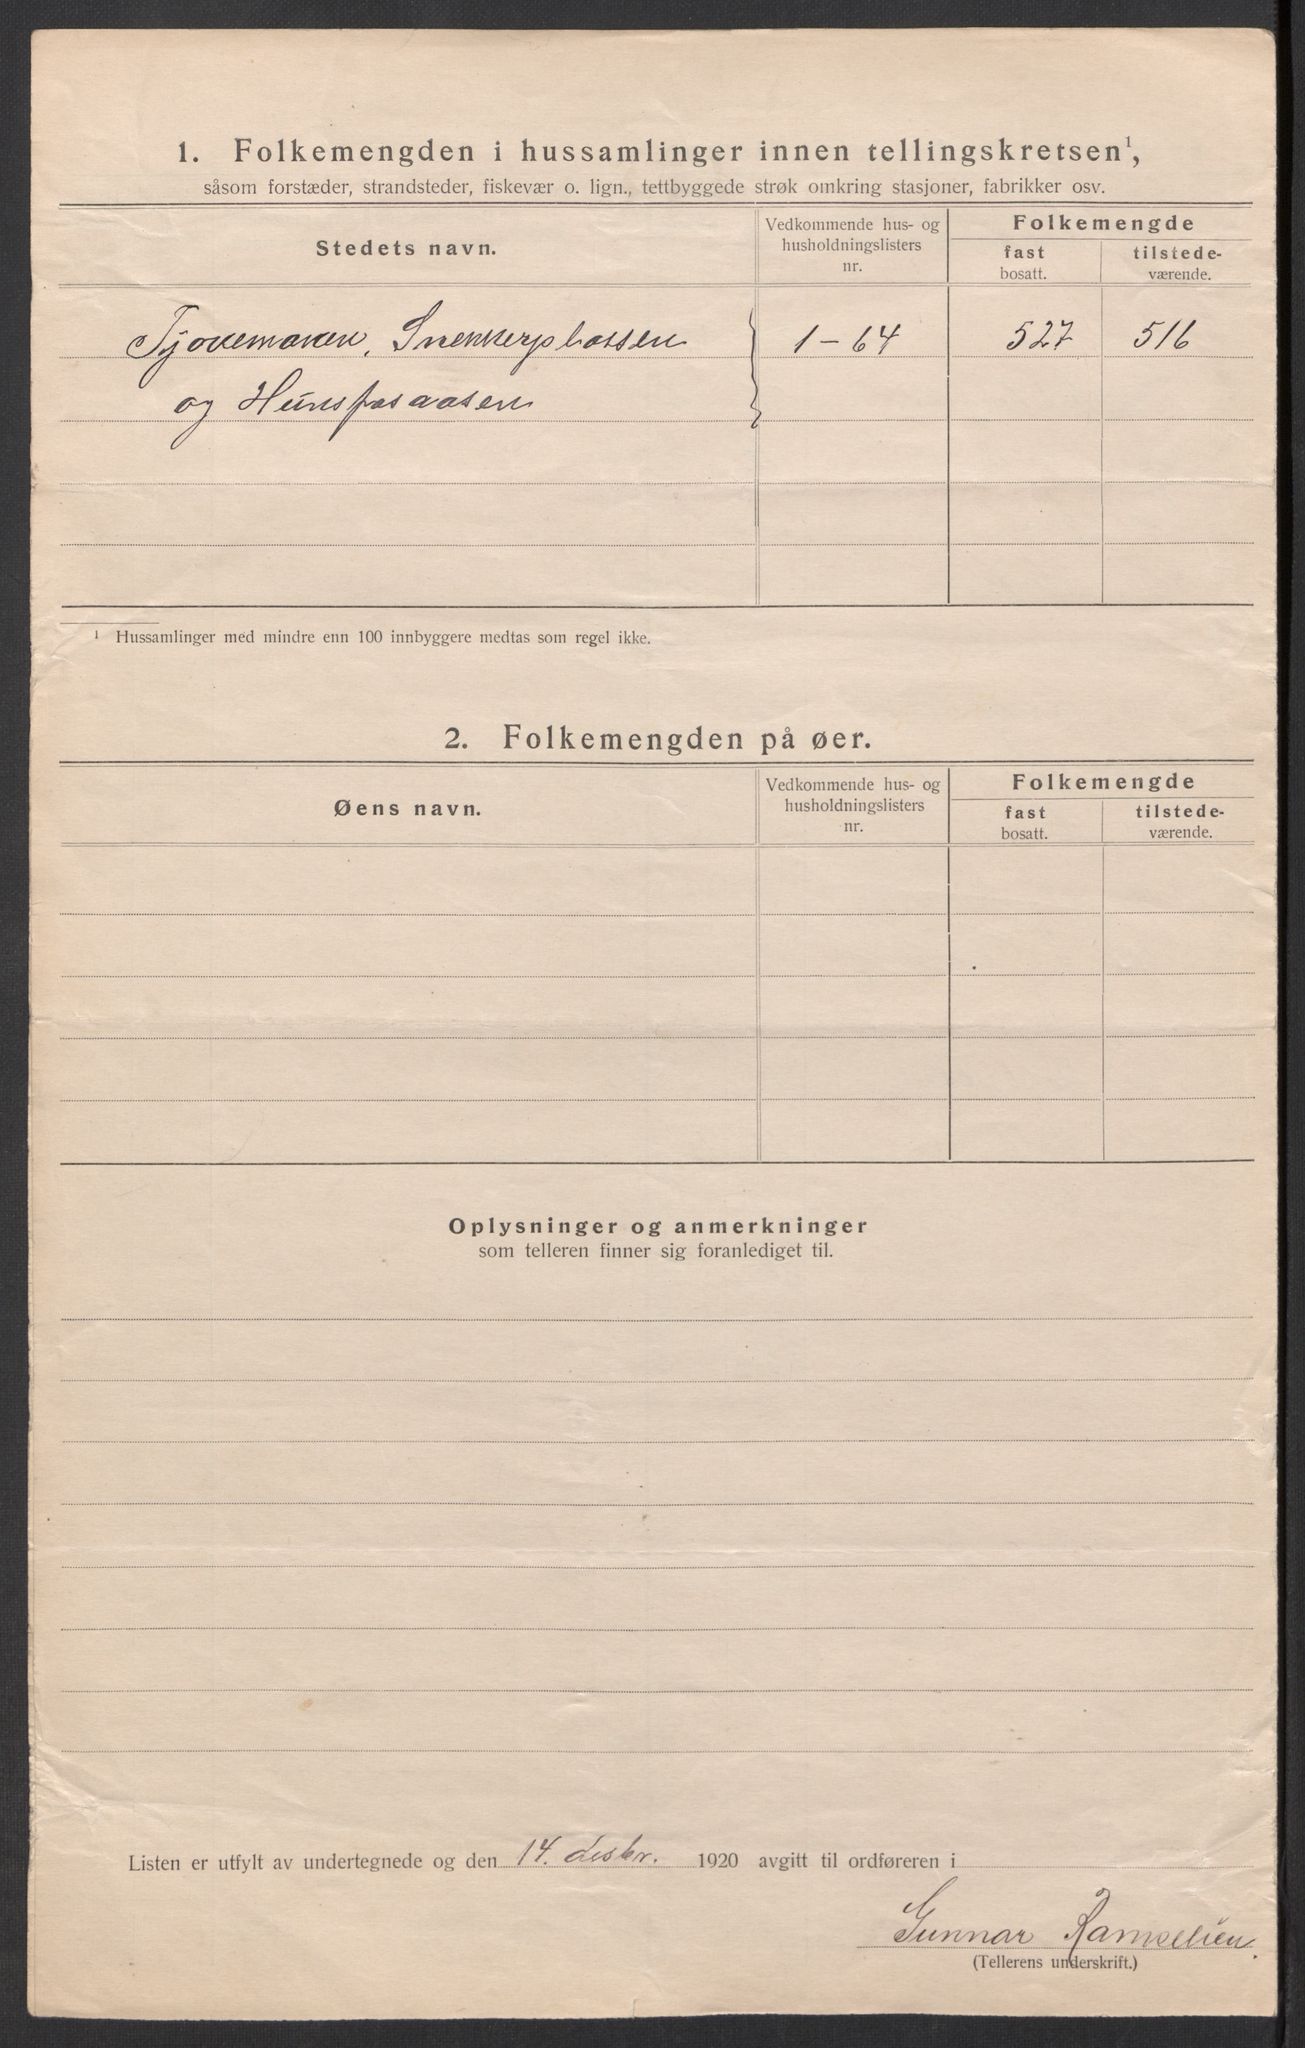 1. Folkemengden i hussamlinger innen tellingskretsen¹,
såsom forstæder, strandsteder, fiskevær o. lign., tettbyggede strøk omkring stasjoner, fabrikker osv.
Stedets navn.
Vedkommende hus- og
husholdningslisters
nr.
Folkemengde
fast
bosatt.
tilstede-
værende.
Snekkerplassen 1-64 527 516
og Hunsfosaasen
¹ Hussamlinger med mindre enn 100 innbyggere medtas som regel ikke.
2. Folkemengden på øer.
Øens navn.
Vedkommende hus- og
husholdningslisters
nr.
Folkemengde
fast
bosatt.
tilstede-
værende.
Oplysninger og anmerkninger
som telleren finner sig foranlediget til.
Listen er utfylt av undertegnede og den 14. desbr. 1920 avgitt til ordføreren i
Gunnar
(Tellerens underskrift.)